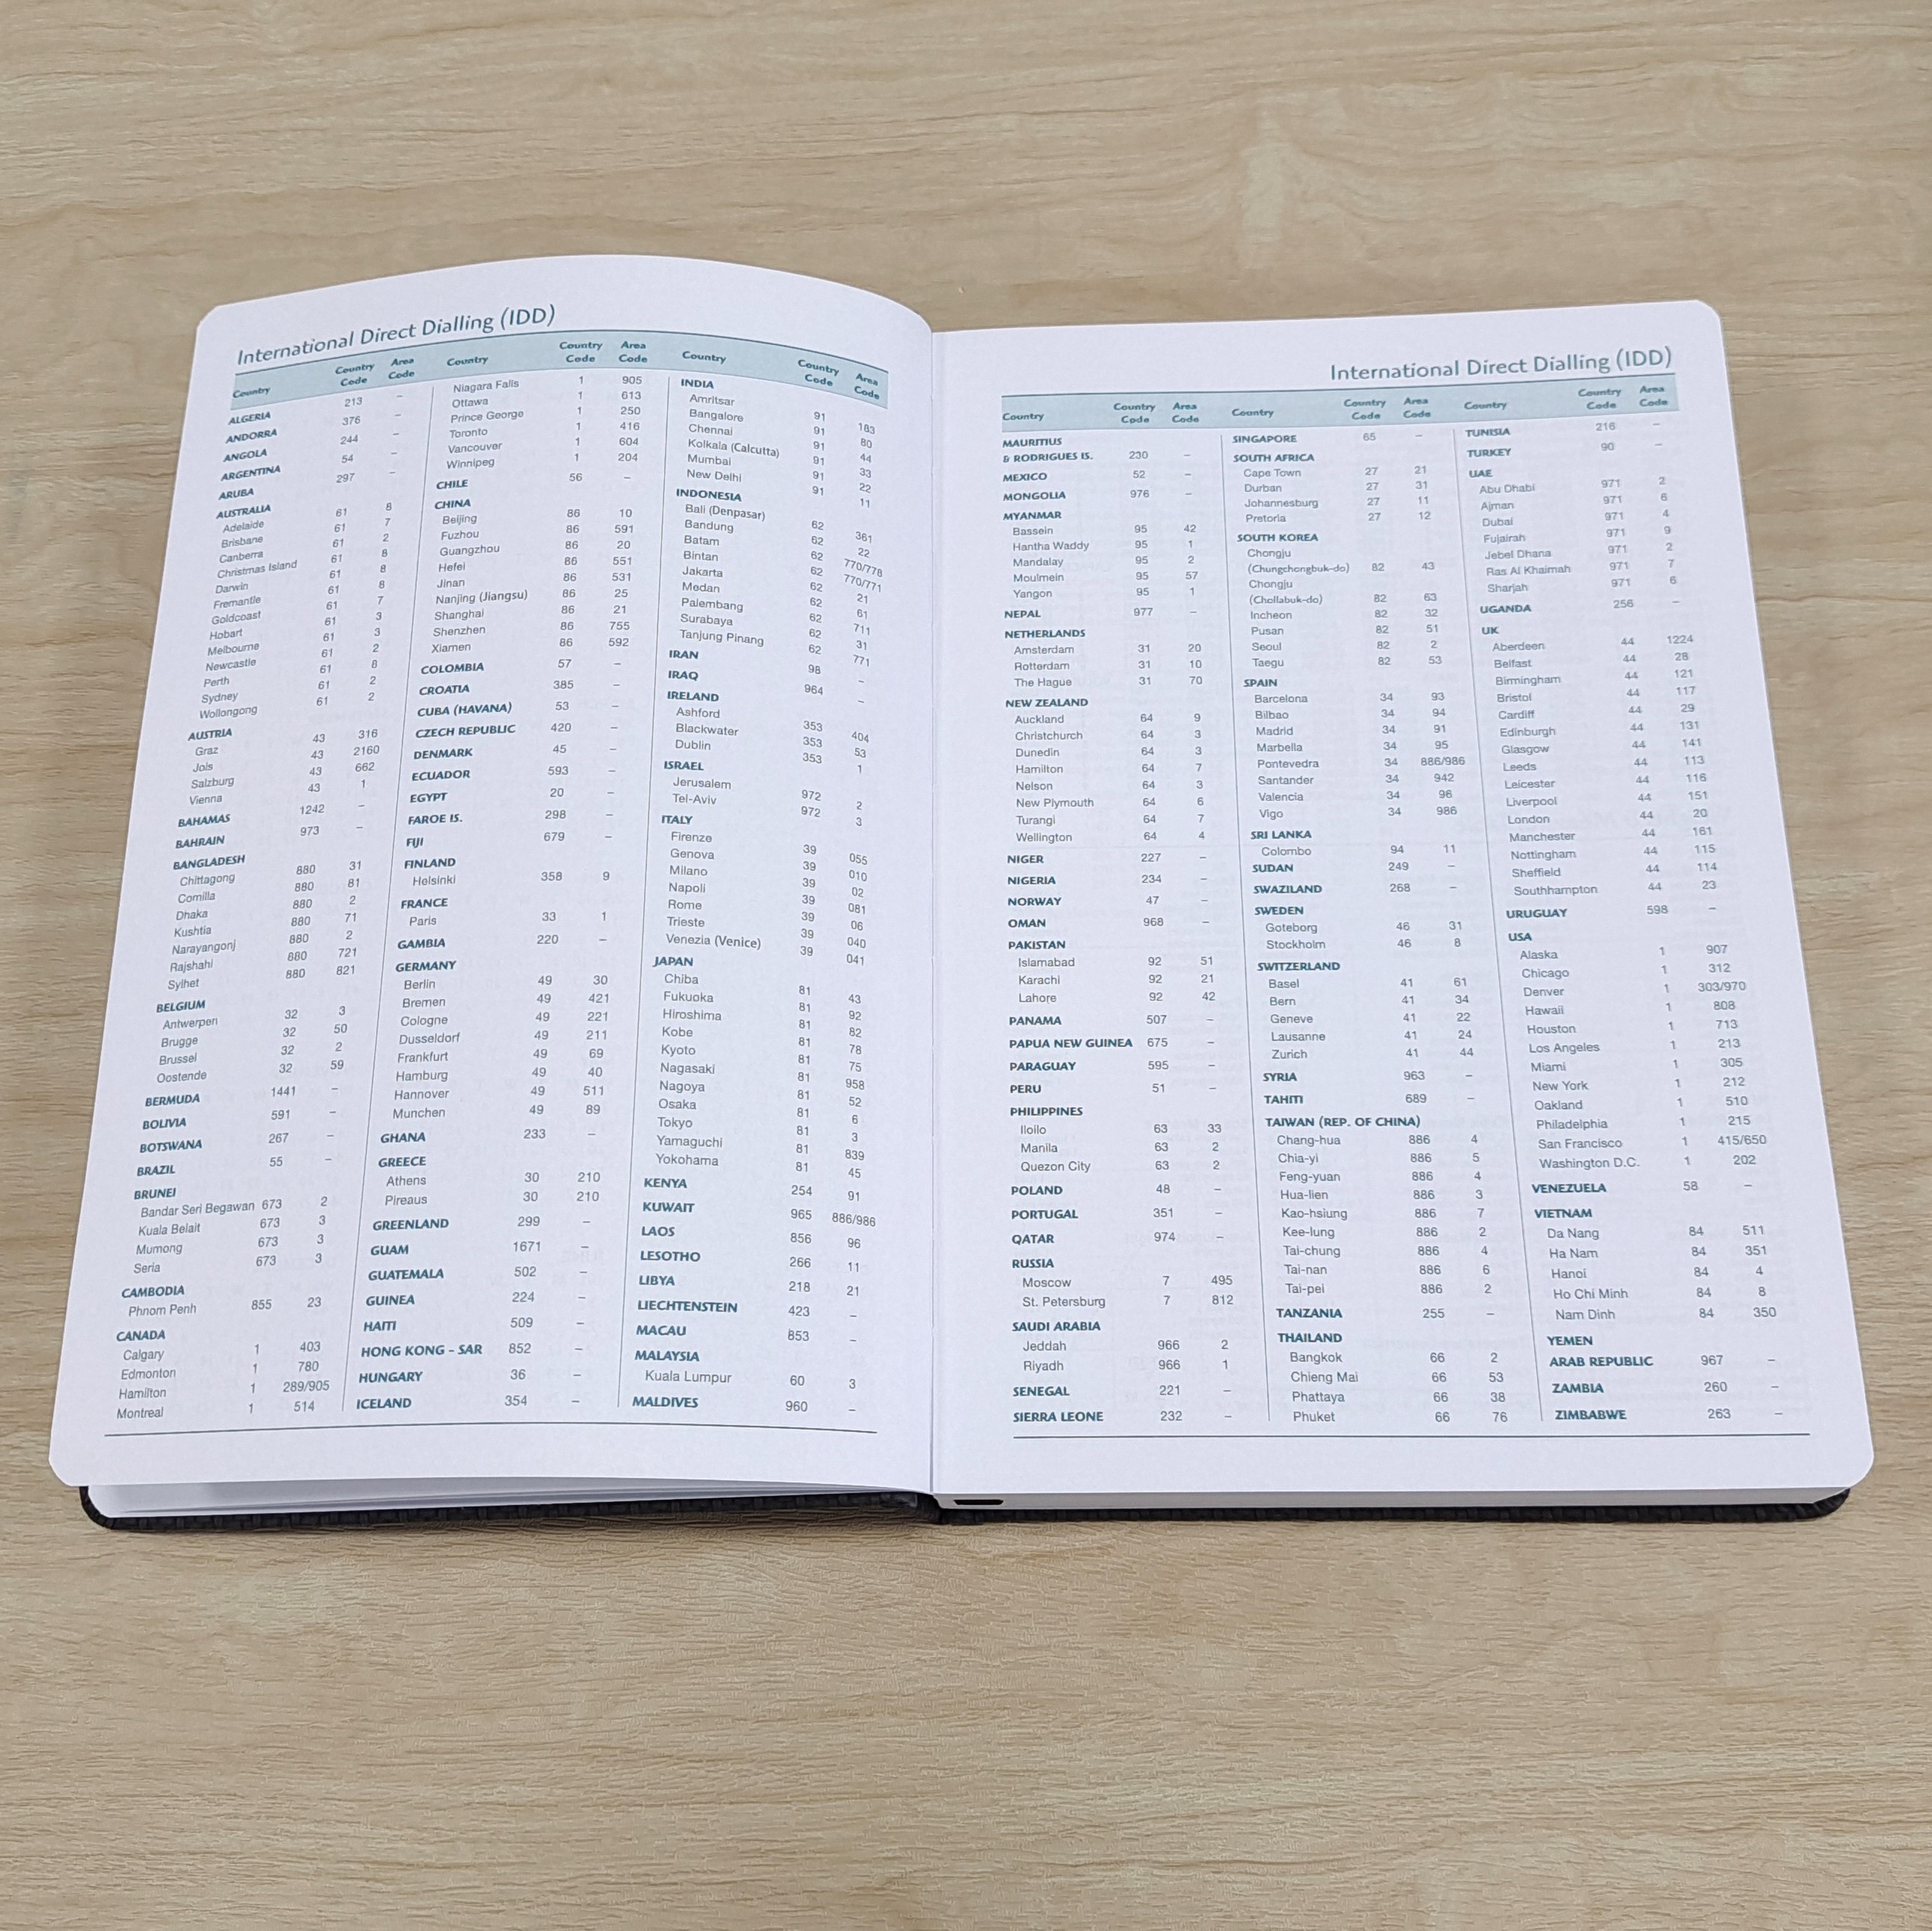 International Direct Dialling (IDD)
Country Country Code Area Code
ALGERIA 213 –
ANDORRA 376 –
ANGOLA 244 –
ARGENTINA 54 –
ARUBA 297 –
AUSTRALIA
Adelaide 61 8
Brisbane 61 7
Canberra 61 2
Christmas Island 61 8
Darwin 61 8
Fremantle 61 8
Goldcoast 61 7
Hobart 61 3
Melbourne 61 3
Newcastle 61 2
Perth 61 8
Sydney 61 2
Wollongong 61 2
AUSTRIA
Graz 43 316
Jois 43 2160
Salzburg 43 662
Vienna 43 1
BAHAMAS 1242 –
BAHRAIN 973 –
BANGLADESH
Chittagong 880 31
Comilla 880 81
Dhaka 880 2
Kushtia 880 71
Narayangonj 880 2
Rajshahi 880 721
Sylhet 880 821
BELGIUM
Antwerpen 32 3
Brugge 32 50
Brussel 32 2
Oostende 32 59
BERMUDA 1441 –
BOLIVIA 591 –
BOTSWANA 267 –
BRAZIL 55 –
BRUNEI
Bandar Seri Begawan 673 2
Kuala Belait 673 3
Mumong 673 3
Seria 673 3
CAMBODIA
Phnom Penh 855 23
CANADA
Calgary 1 403
Edmonton 1 780
Hamilton 1 289/905
Montreal 1 514
Country Country Code Area Code
Niagara Falls 1 905
Ottawa 1 613
Prince George 1 250
Toronto 1 416
Vancouver 1 604
Winnipeg 1 204
CHILE 56 –
CHINA
Beijing 86 10
Fuzhou 86 591
Guangzhou 86 20
Hefei 86 551
Jinan 86 531
Nanjing (Jiangsu) 86 25
Shanghai 86 21
Shenzhen 86 755
Xiamen 86 592
COLOMBIA 57 –
CROATIA 385 –
CUBA (HAVANA) 53 –
CZECH REPUBLIC 420 –
DENMARK 45 –
ECUADOR 593 –
EGYPT 20 –
FAROE IS. 298 –
FIJI 679 –
FINLAND
Helsinki 358 9
FRANCE
Paris 33 1
GAMBIA 220 –
GERMANY
Berlin 49 30
Bremen 49 421
Cologne 49 221
Dusseldorf 49 211
Frankfurt 49 69
Hamburg 49 40
Hannover 49 511
Munchen 49 89
GHANA 233 –
GREECE
Athens 30 210
Pireaus 30 210
GREENLAND 299 –
GUAM 1671 –
GUATEMALA 502 –
GUINEA 224 –
HAITI 509 –
HONG KONG - SAR 852 –
HUNGARY 36 –
ICELAND 354 –
Country Country Code Area Code
INDIA
Amritsar 91 183
Bangalore 91 80
Chennai 91 44
Kolkala (Calcutta) 91 33
Mumbai 91 22
New Delhi 91 11
INDONESIA
Bali (Denpasar) 62 361
Bandung 62 22
Batam 62 770/778
Bintan 62 770/771
Jakarta 62 21
Medan 62 61
Palembang 62 711
Surabaya 62 31
Tanjung Pinang 62 771
IRAN 98 –
IRAQ 964 –
IRELAND
Ashford 353 404
Blackwater 353 53
Dublin 353 1
ISRAEL
Jerusalem 972 2
Tel-Aviv 972 3
ITALY
Firenze 39 055
Genova 39 010
Milano 39 02
Napoli 39 081
Rome 39 06
Trieste 39 040
Venezia (Venice) 39 041
JAPAN
Chiba 81 43
Fukuoka 81 92
Hiroshima 81 82
Kobe 81 78
Kyoto 81 75
Nagasaki 81 958
Nagoya 81 52
Osaka 81 6
Tokyo 81 3
Yamaguchi 81 839
Yokohama 81 45
KENYA 254 91
KUWAIT 965 886/986
LAOS 856 96
LESOTHO 266 11
LIBYA 218 21
LIECHTENSTEIN 423 –
MACAU 853 –
MALAYSIA
Kuala Lumpur 60 3
MALDIVES 960 –
International Direct Dialling (IDD)
Country Country Code Area Code
MAURITIUS
& RODRIGUES IS. 230 –
MEXICO 52 –
MONGOLIA 976 –
MYANMAR
Bassein 95 42
Hantha Waddy 95 1
Mandalay 95 2
Moulmein 95 57
Yangon 95 1
NEPAL 977 –
NETHERLANDS
Amsterdam 31 20
Rotterdam 31 10
The Hague 31 70
NEW ZEALAND
Auckland 64 9
Christchurch 64 3
Dunedin 64 3
Hamilton 64 7
Nelson 64 3
New Plymouth 64 6
Turangi 64 7
Wellington 64 4
NIGER 227 –
NIGERIA 234 –
NORWAY 47 –
OMAN 968 –
PAKISTAN
Islamabad 92 51
Karachi 92 21
Lahore 92 42
PANAMA 507 –
PAPUA NEW GUINEA 675 –
PARAGUAY 595 –
PERU 51 –
PHILIPPINES
Iloilo 63 33
Manila 63 2
Quezon City 63 2
POLAND 48 –
PORTUGAL 351 –
QATAR 974 –
RUSSIA
Moscow 7 495
St. Petersburg 7 812
SAUDI ARABIA
Jeddah 966 2
Riyadh 966 1
SENEGAL 221 –
SIERRA LEONE 232 –
Country Country Code Area Code
SINGAPORE 65 –
SOUTH AFRICA
Cape Town 27 21
Durban 27 31
Johannesburg 27 11
Pretoria 27 12
SOUTH KOREA
Chongju
(Chungchongbuk-do) 82 43
Chongju
(Chollabuk-do) 82 63
Incheon 82 32
Pusan 82 51
Seoul 82 2
Taegu 82 53
SPAIN
Barcelona 34 93
Bilbao 34 94
Madrid 34 91
Marbella 34 95
Pontevedra 34 886/986
Santander 34 942
Valencia 34 96
Vigo 34 986
SRI LANKA
Colombo 94 11
SUDAN 249 –
SWAZILAND 268 –
SWEDEN
Goteborg 46 31
Stockholm 46 8
SWITZERLAND
Basel 41 61
Bern 41 34
Geneve 41 22
Lausanne 41 24
Zurich 41 44
SYRIA 963 –
TAHITI 689 –
TAIWAN (REP. OF CHINA)
Chang-hua 886 4
Chia-yi 886 5
Feng-yuan 886 4
Hua-lien 886 3
Kao-hsiung 886 7
Kee-lung 886 2
Tai-chung 886 4
Tai-nan 886 6
Tai-pei 886 2
TANZANIA 255 –
THAILAND
Bangkok 66 2
Chieng Mai 66 53
Phattaya 66 38
Phuket 66 76
Country Country Code Area Code
TUNISIA 216 –
TURKEY 90 –
UAE
Abu Dhabi 971 2
Ajman 971 6
Dubai 971 4
Fujairah 971 9
Jebel Dhana 971 2
Ras Al Khaimah 971 7
Sharjah 971 6
UGANDA 256 –
UK
Aberdeen 44 1224
Belfast 44 28
Birmingham 44 121
Bristol 44 117
Cardiff 44 29
Edinburgh 44 131
Glasgow 44 141
Leeds 44 113
Leicester 44 116
Liverpool 44 151
London 44 20
Manchester 44 161
Nottingham 44 115
Sheffield 44 114
Southhampton 44 23
URUGUAY 598 –
USA
Alaska 1 907
Chicago 1 312
Denver 1 303/970
Hawaii 1 808
Houston 1 713
Los Angeles 1 213
Miami 1 305
New York 1 212
Oakland 1 510
Philadelphia 1 215
San Francisco 1 415/650
Washington D.C. 1 202
VENEZUELA 58 –
VIETNAM
Da Nang 84 511
Ha Nam 84 351
Hanoi 84 4
Ho Chi Minh 84 8
Nam Dinh 84 350
YEMEN
ARAB REPUBLIC 967 –
ZAMBIA 260 –
ZIMBABWE 263 –